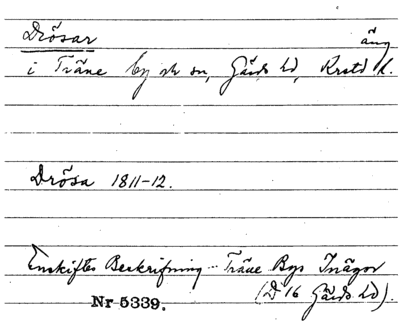 Drösar
äng
i Träne by ok sn, Gärds hd, Krstd l.
Drösa 1811-12.
Enskiftes Beskrifning - Träne Bys Inägor
Nr 5339. (D 16 Gärds hd).